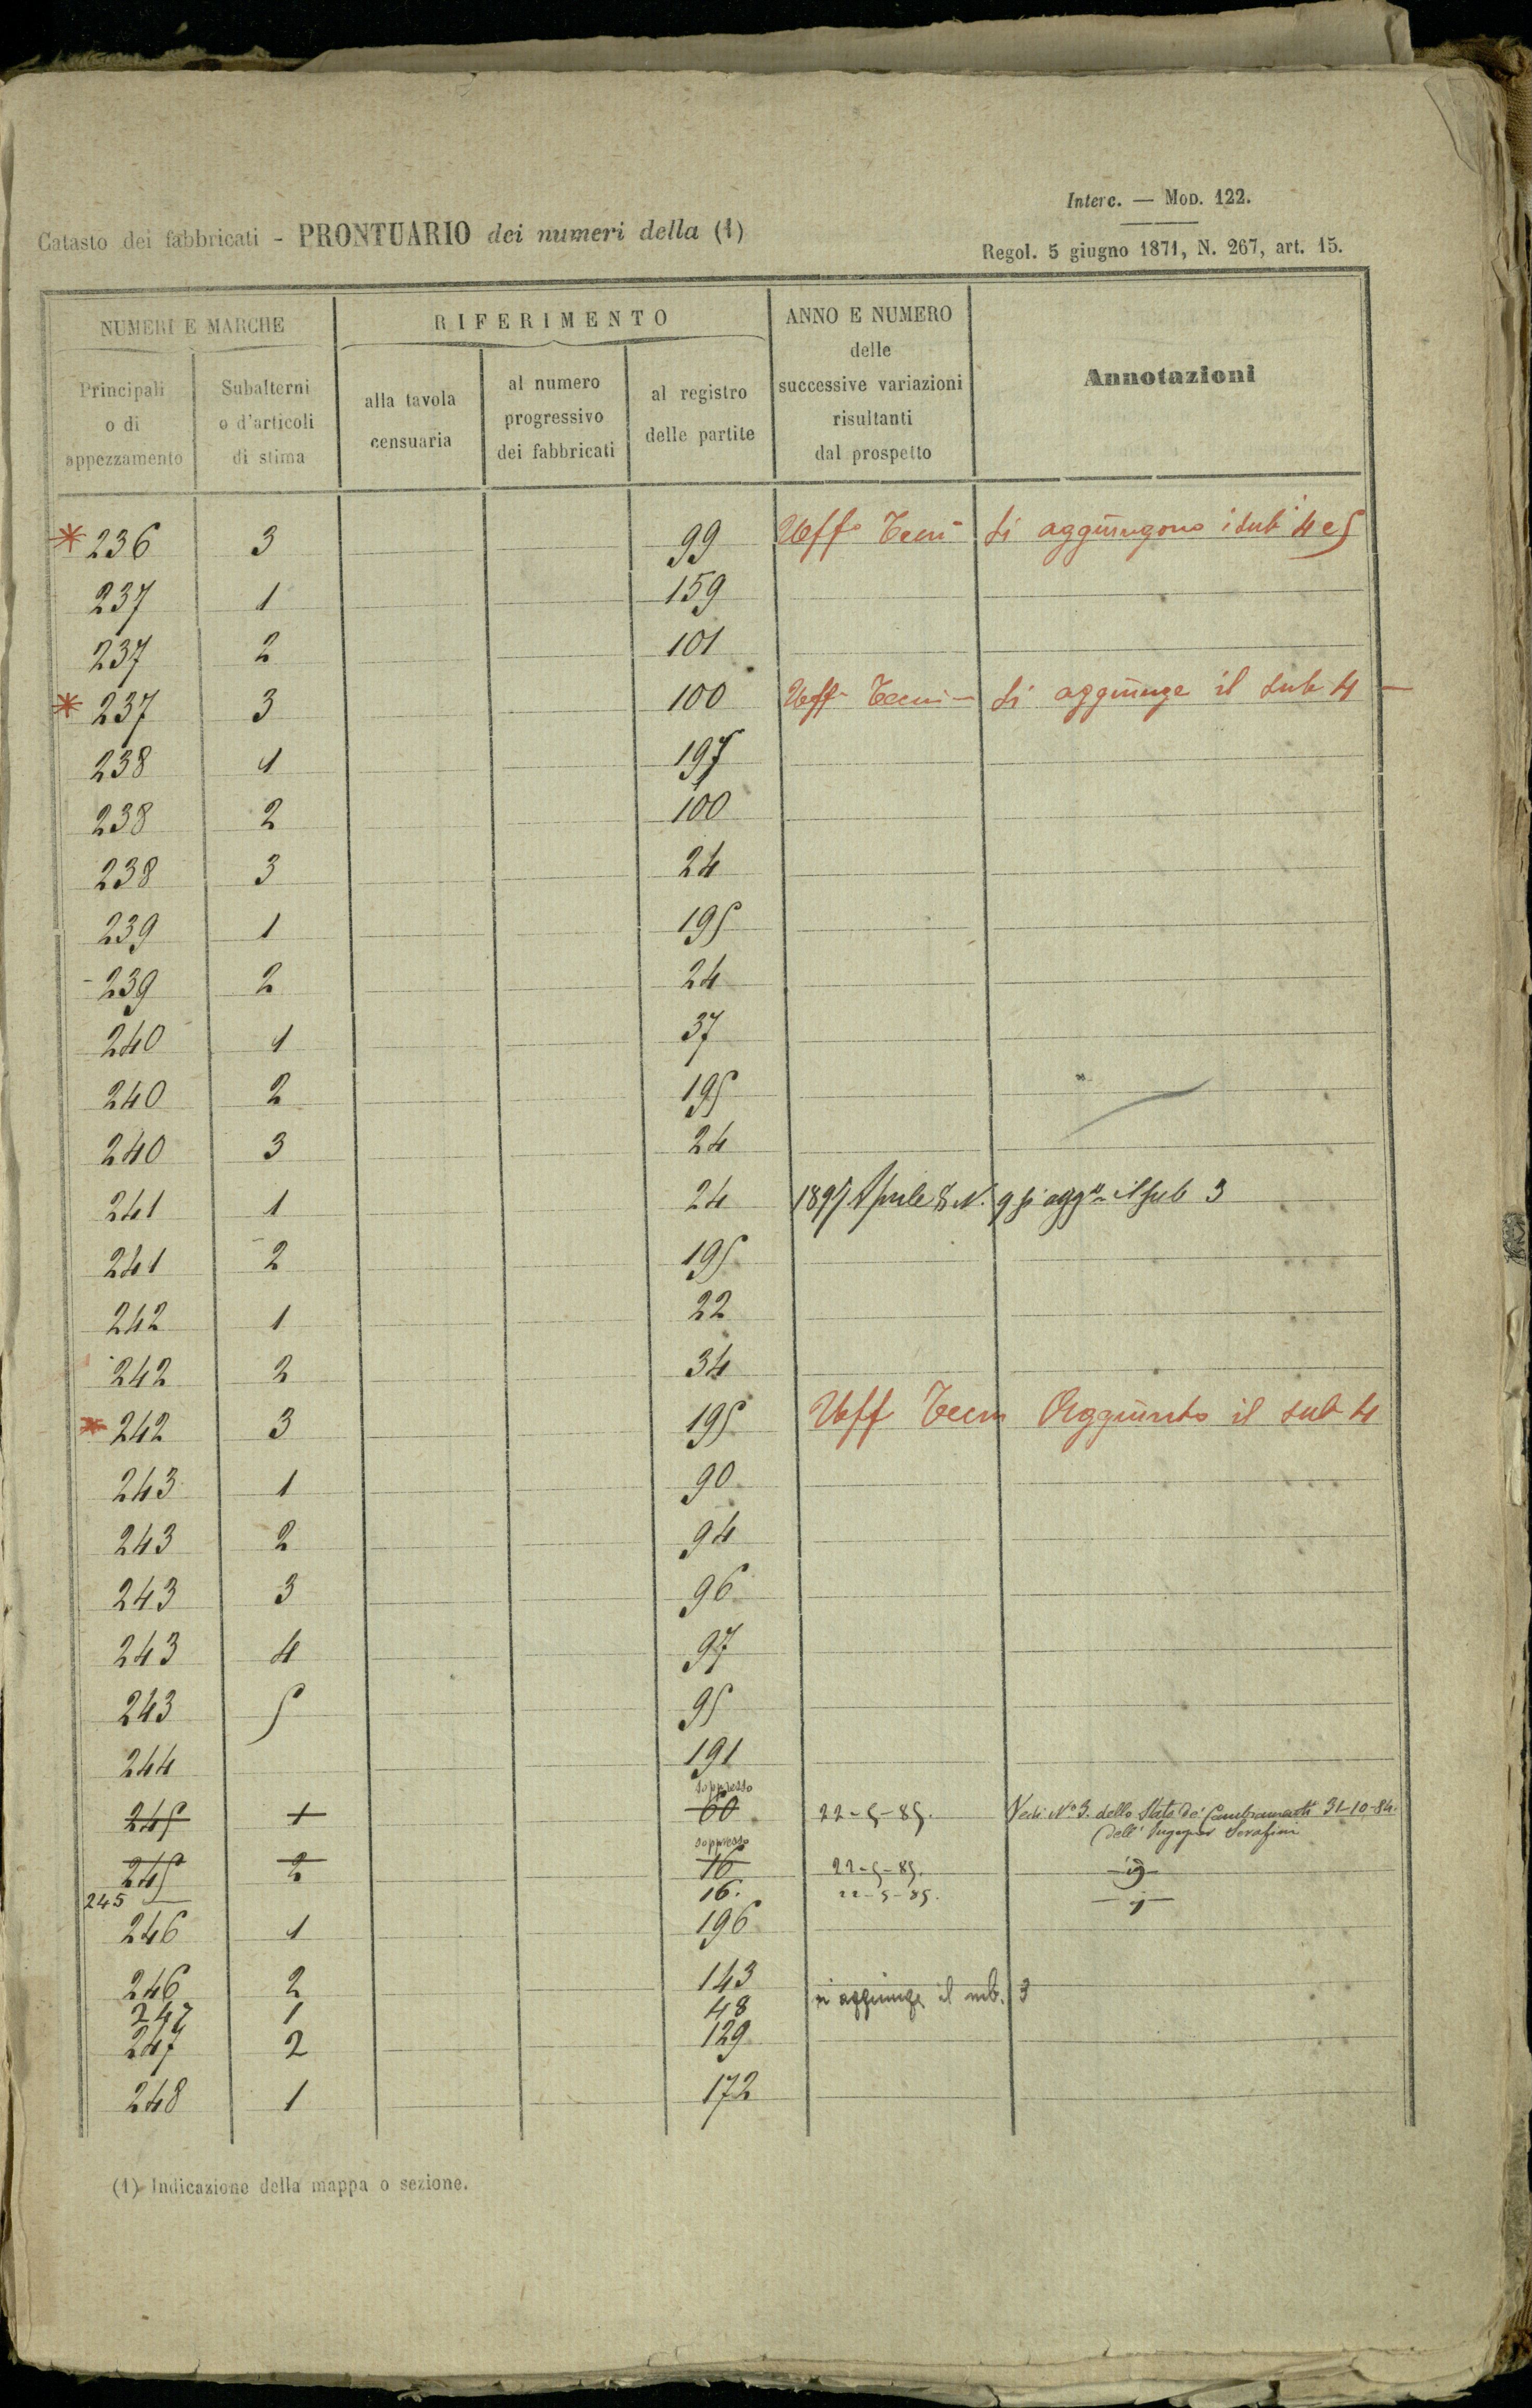 Interc. — Mod. 122.
Catasto dei fabbricati - PRONTUARIO dei numeri della (1)
Regol. 5 giugno 1871, N. 267, art. 15.
NUMERI E MARCHE
RIFERIMENTO
ANNO E NUMERO
delle
successive variazioni
risultanti
dal prospetto
Annotazioni
Principali
o di
appezzamento
Subalterni
o d'articoli
di stima
alla tavola
censuaria
al numero
progressivo
dei fabbricati
al registro
delle partite
* 236 3 99 Uff. Tecn- Si aggiungono i sub 4 e 5
237 1 159
237 2 101
* 237 3 100 Uff- Tecn- Si aggiunge il sub 4 —
238 1 197
238 2 100
238 3 24
239 1 195
239 2 24
240 1 37
240 2 195
240 3 24
241 1 24 1897 Aprile 8 N. 9 si agg. il sub 3
241 2 195
242 1 22
242 2 34
* 242 3 195 Uff Tecn Aggiunto il sub 4
243 1 90
243 2 94
243 3 96
243 4 97
243 5 95
244 191
soppresso
245 1 60 22-5-85. Vedi No 3. dello Stato de' Cambiamenti 31-10-84.
dell' Ingegner Serafini
soppresso
245 2 16 22-5-85. — id —
245 16. 22-5-85.
246 1 196
246 2 143 si aggiunge il sub. 3
247 1 48
247 2 129
248 1 172
(1) Indicazione della mappa o sezione.